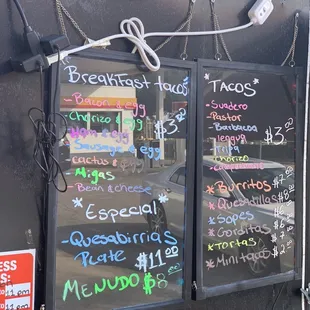 Breakfast tacos
- Bacon & egg
- Chorizo & egg
- Ham & egg
- Sausage & egg
- cactus & egg
- Migas
- Bean & cheese
$3.
* Especial *
- Quesabirrias
Plate $11.00
MENUDO $8.00
* TACOS *
- Suadero
- Pastor
- Barbacoa
- lengua
- Tripa
- Chorizo
$3
* Burritos $
* Quesadillas $
* Sopes $
* Gorditas $
* Tortas $
* Mini tacos $